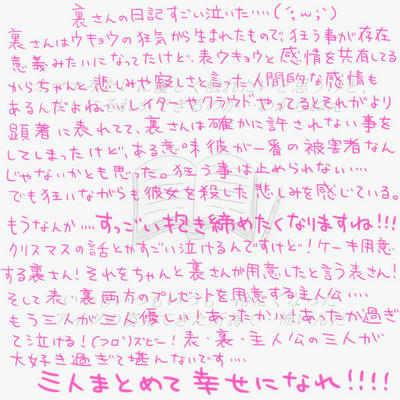 裏さんの日記すごい泣いた‥‥(´;ω;`)
裏さんはウキョウの狂気が生まれたもので、狂う事が存在
意義みたいになってたけど、表ウキョウと感情を共有してる
からちゃんと悲しみや寂しさと言った人間的な感情も
あるんだよね。でレイターやクラウドやってるとそれがより
顕著に表れてて、裏さんは確かに許されない事を
してしまったけど、ある意味彼が一番の被害者なん
じゃないかとも思った。狂う事は止められない‥‥
でも狂いながらも彼女を殺した悲しみを感じている。
もうなんか‥‥すっごい抱き締めたくなりますね!!!
クリスマスの話とかすごい泣けるんですけど!ケーキ用意
する裏さん!それをちゃんと裏さんが用意したと言う表さん!
そして表・裏両方のプレゼントを用意する主人公‥‥
もう三人が三人優しい!あったかい!あったか過ぎ
て泣ける!(フロ)ズビー!表・裏・主人公の三人が
大好き過ぎて堪んないです‥‥
三人まとめて幸せになれ!!!!